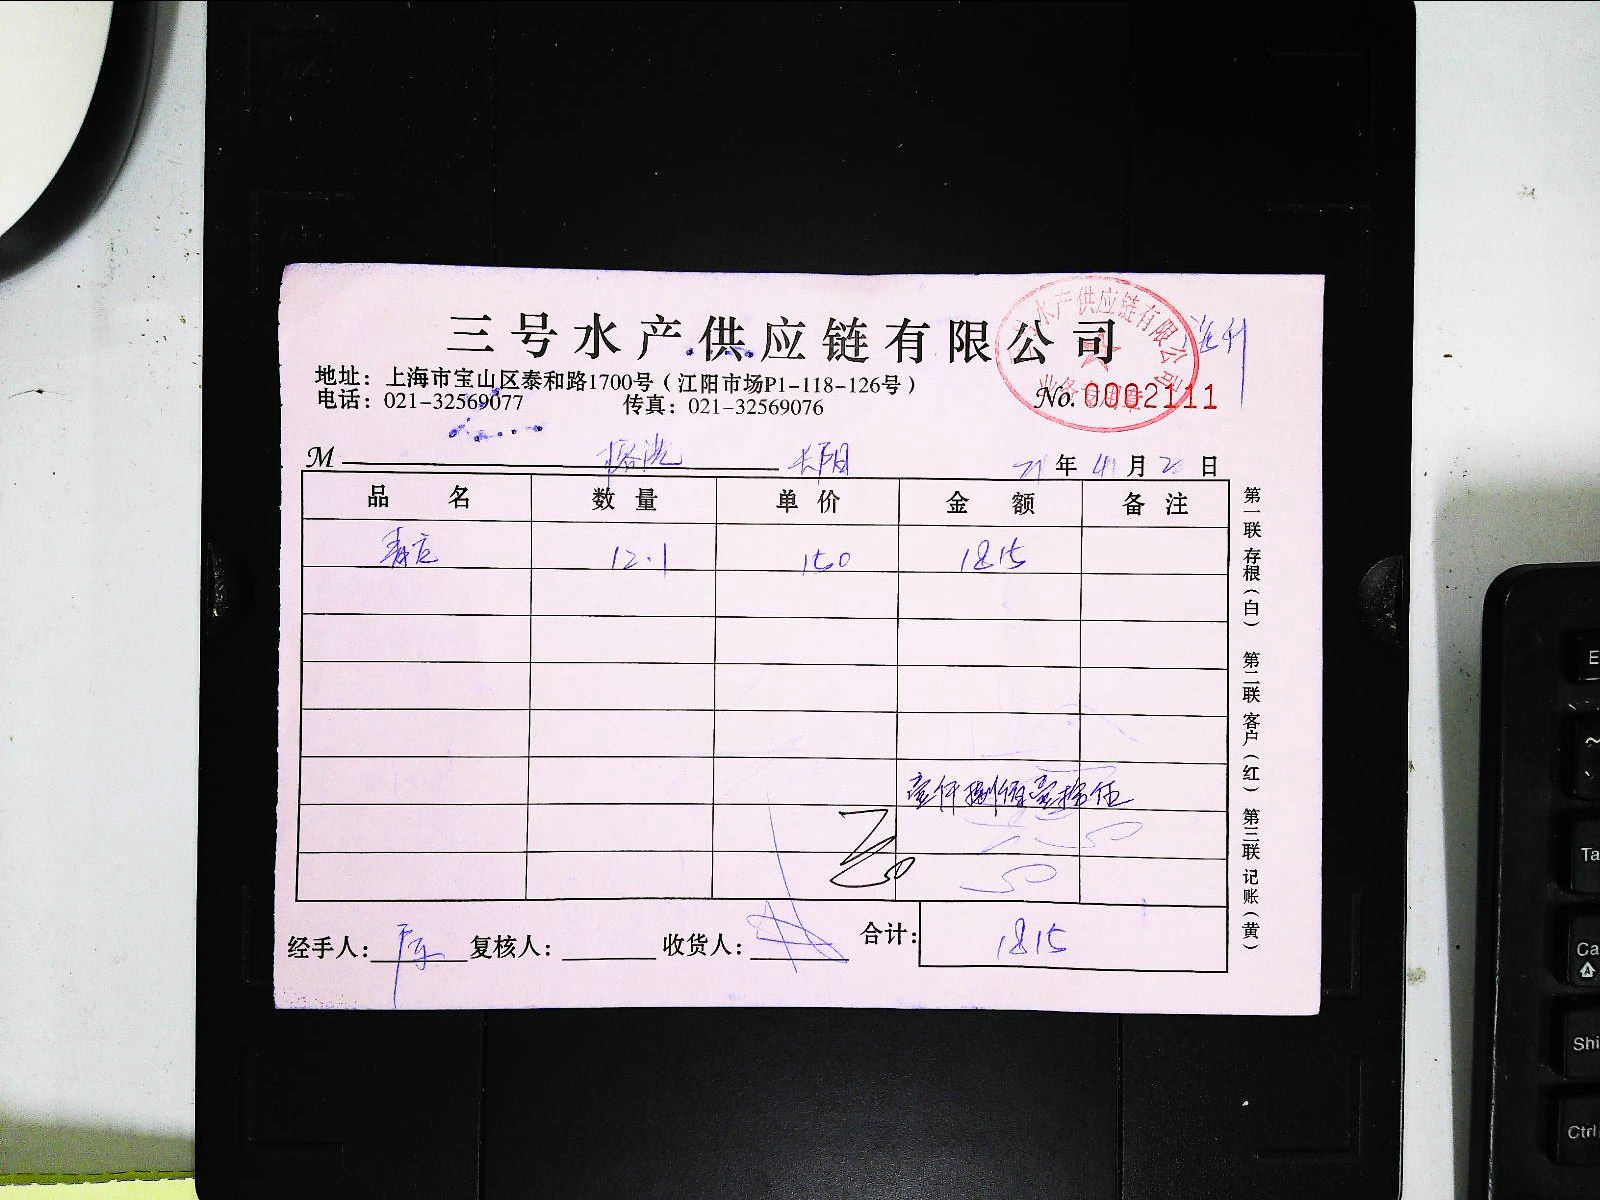 三号水产供应链有限公司
水产供应链有限公司
业务
地址：上海市宝山区泰和路1700号（江阳市场P1-118-126号）
电话：021-32569077 传真：021-32569076
No. 0002111
M
年 月 日
品名 数量 单价 金额 备注
12.1 150 1815
壹仟捌佰壹拾伍
经手人： 复核人： 收货人： 合计： 1815
第一联 存根（白） 第二联 客户（红） 第三联 记账（黄）
Ctrl